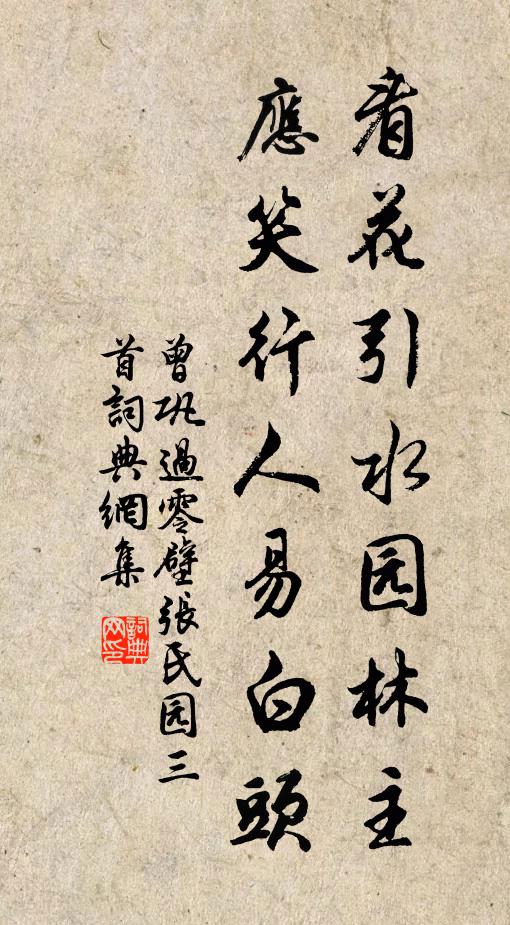 看花引水园林主
應笑行人易白頭
曾巩過零壁張氏园三
首詞典網集
詞典网印